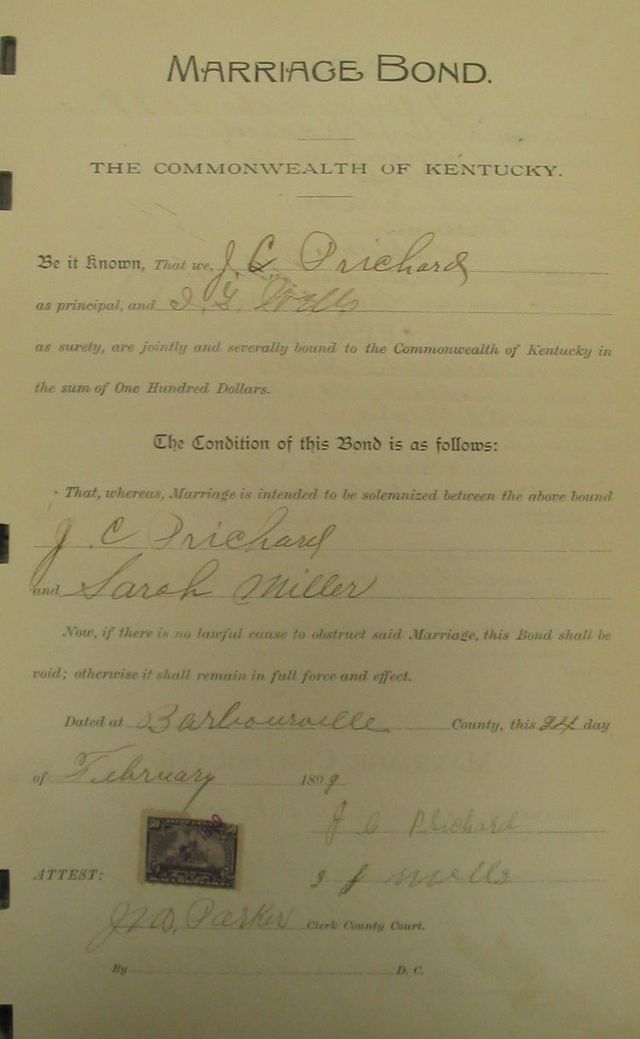 MARRIAGE BOND.
THE COMMONWEALTH OF KENTUCKY.
Be it Known, That we, J. C. Prichard
as principal, and I. G. Wells
as surety, are jointly and severally bound to the Commonwealth of Kentucky in
the sum of One Hundred Dollars.
The Condition of this Bond is as follows:
That, whereas, Marriage is intended to be solemnized between the above bound
J. C Prichard
and Sarah Miller
Now, if there is no lawful cause to obstruct said Marriage, this Bond shall be
void; otherwise it shall remain in full force and effect.
Dated at Barbourville County, this 24 day
of February 1899
J C Prichard
50 50
ATTEST: I J Wells
Parker Clerk County Court.
By D. C.